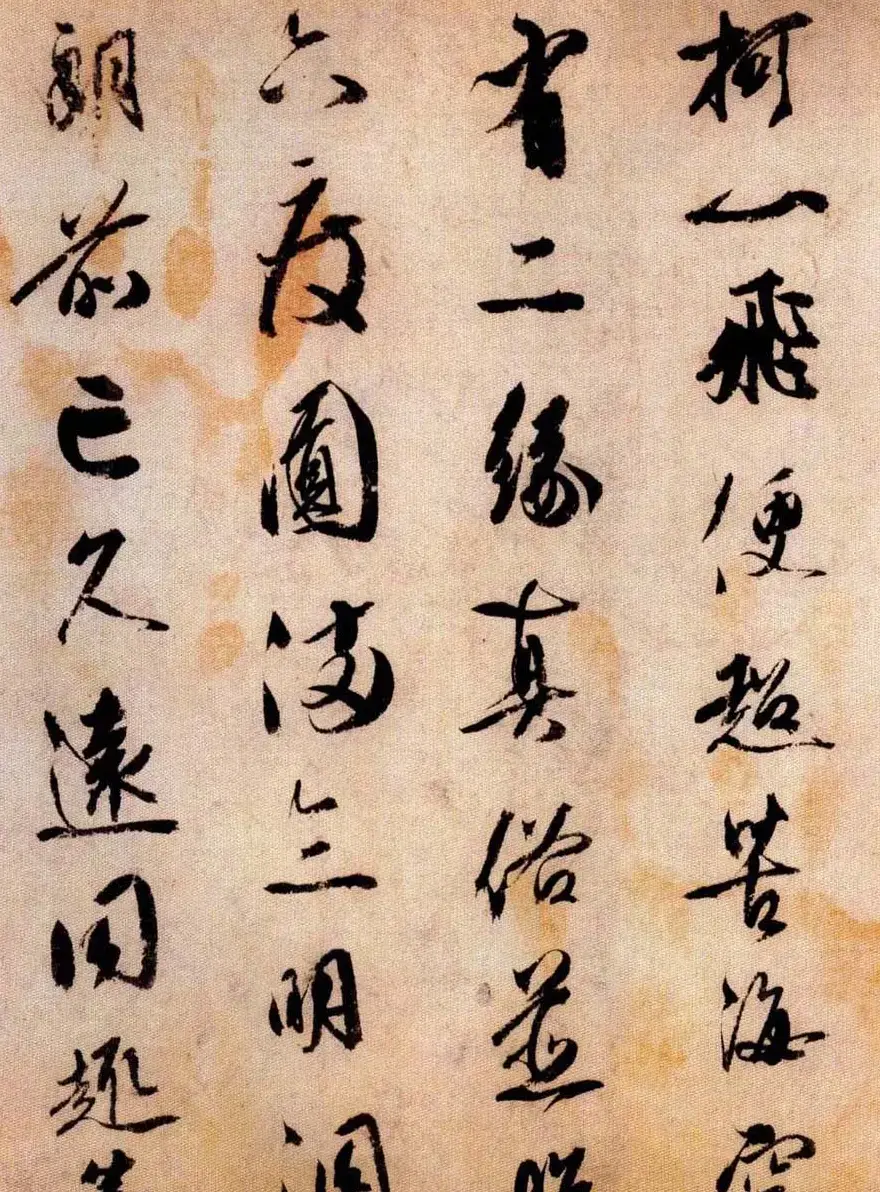 柯一飛便超苦海
有二緣真俗並
六度圓滿三明洞
朗前已久遠同趣